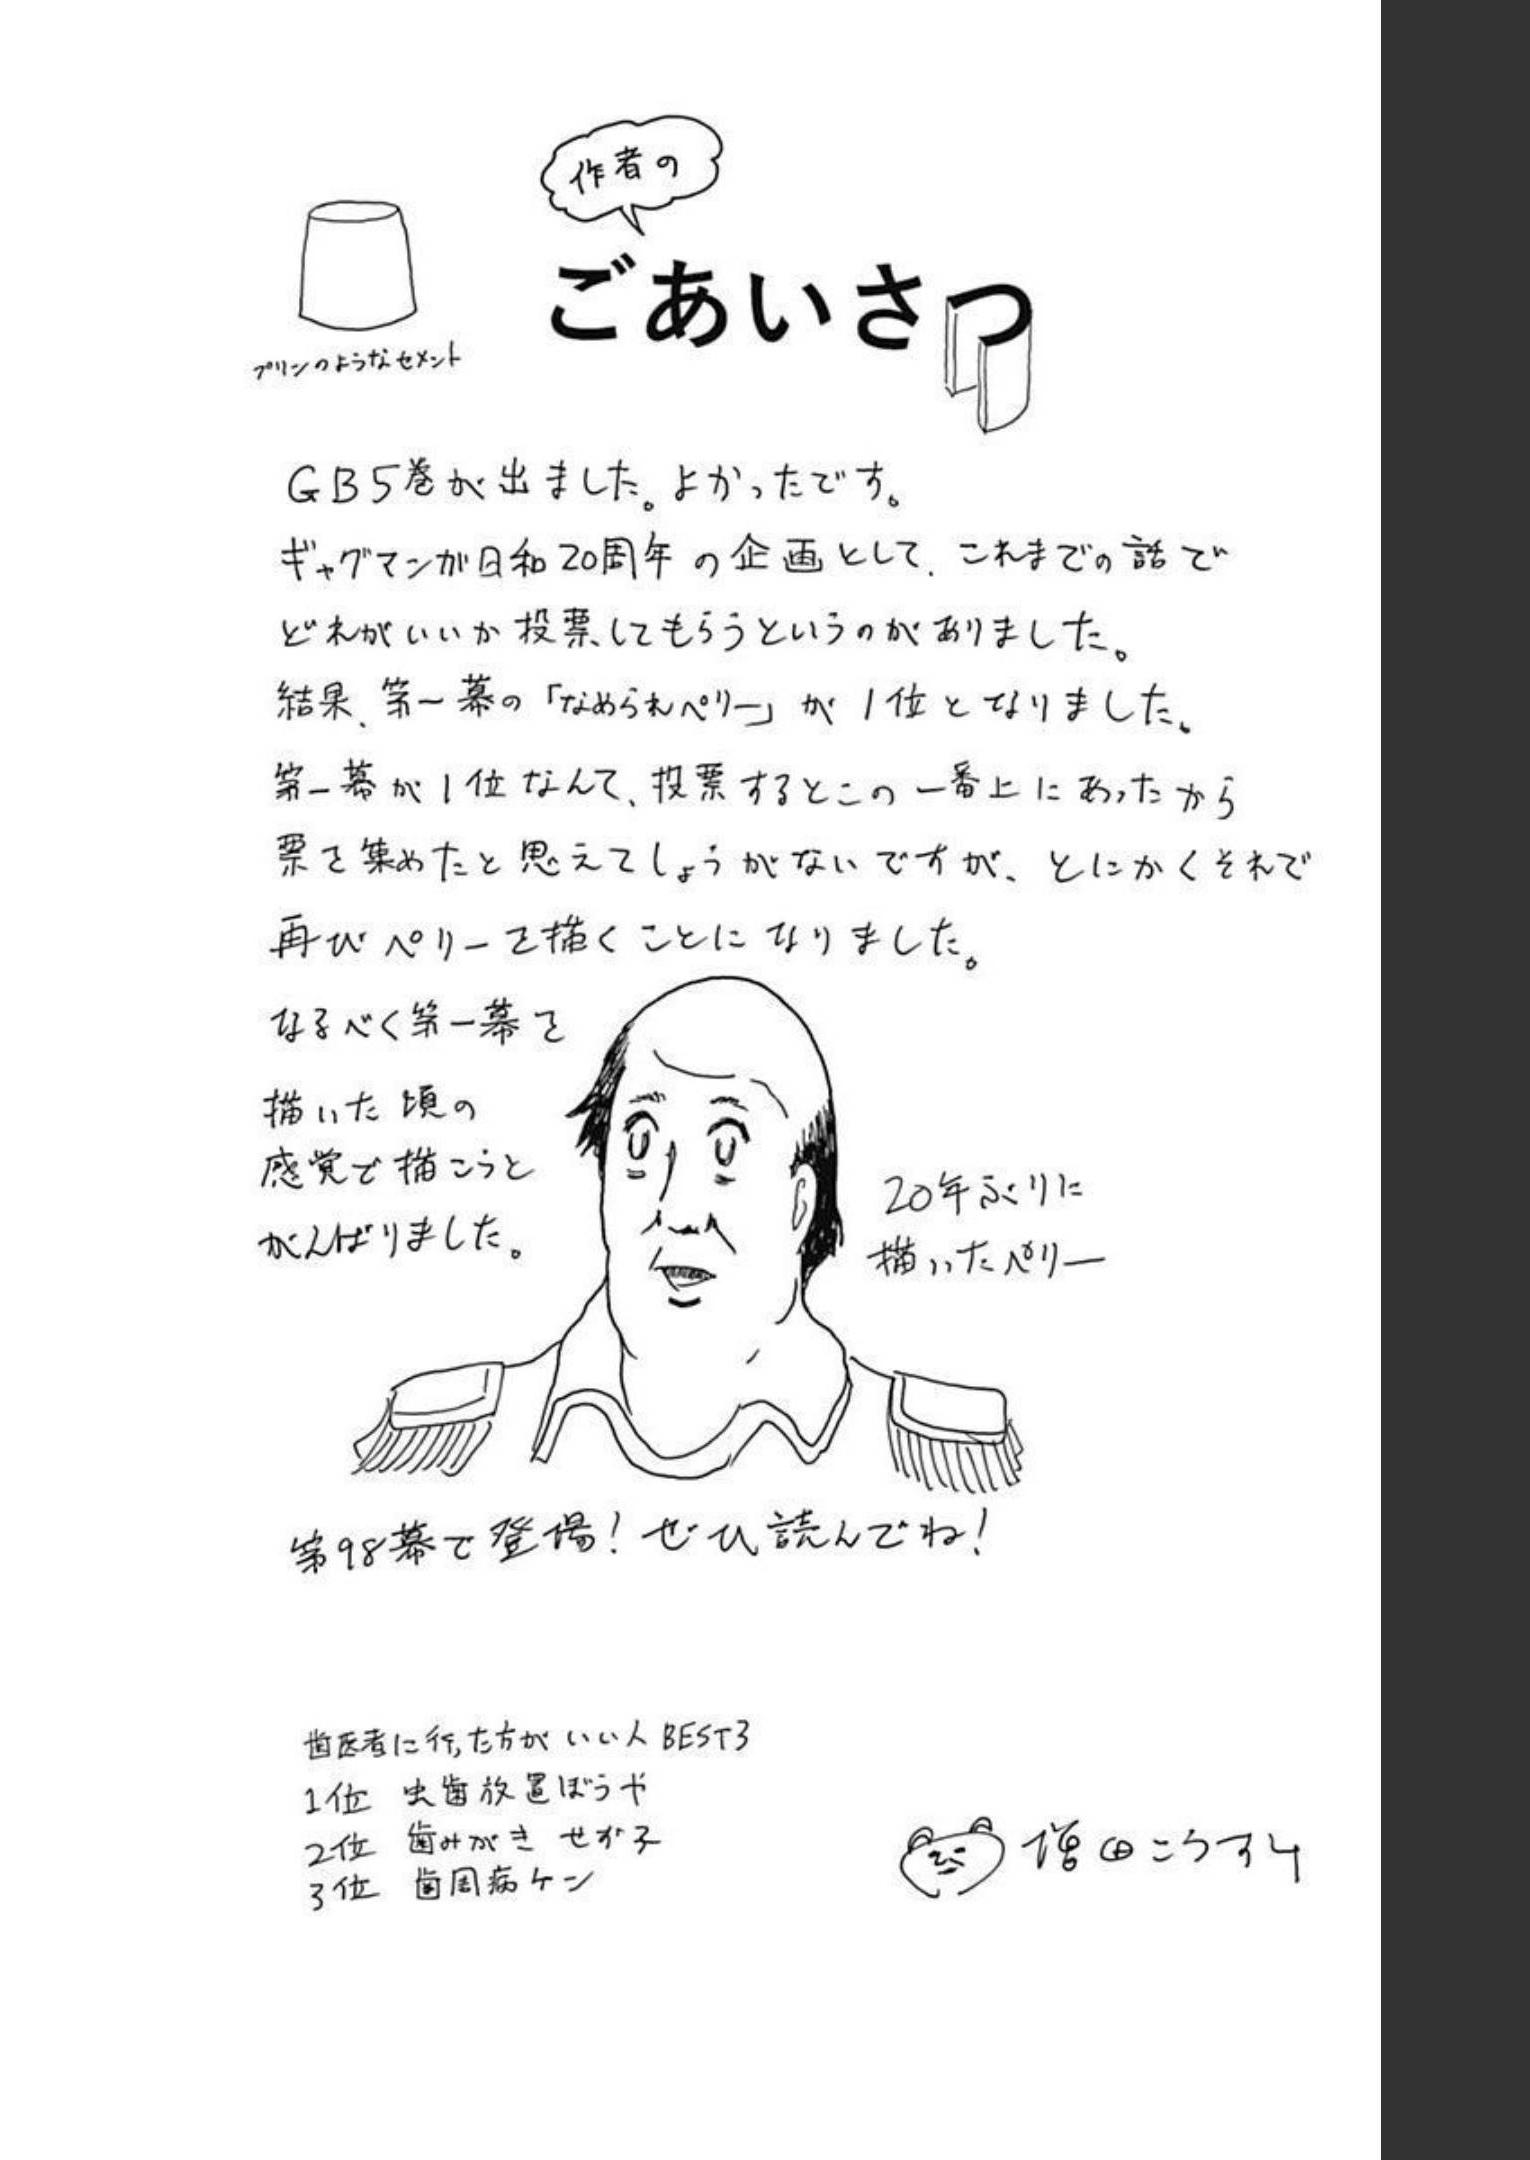 作者の
ごあいさつ
プリンのようなセメント
GB5巻が出ました。よかったです。
ギャグマンガ日和20周年の企画として、これまでの話で
どれがいいか投票してもらうというのがありました。
結果、第一幕の「なめられペリー」が1位となりました。
第一幕が1位なんて、投票するとこの一番上にあったから
票を集めたと思えてしょうがないですが、とにかくそれで
再びペリーを描くことになりました。
なるべく第一幕を
描いた頃の
感覚で描こうと
がんばりました。
20年ぶりに
描いたペリー
第98幕で登場!ぜひ読んでね!
歯医者に行った方がいい人BEST3
1位 虫歯放置ぼうや
2位 歯みがきせず子
3位 歯周病ケン
増田こうすけ